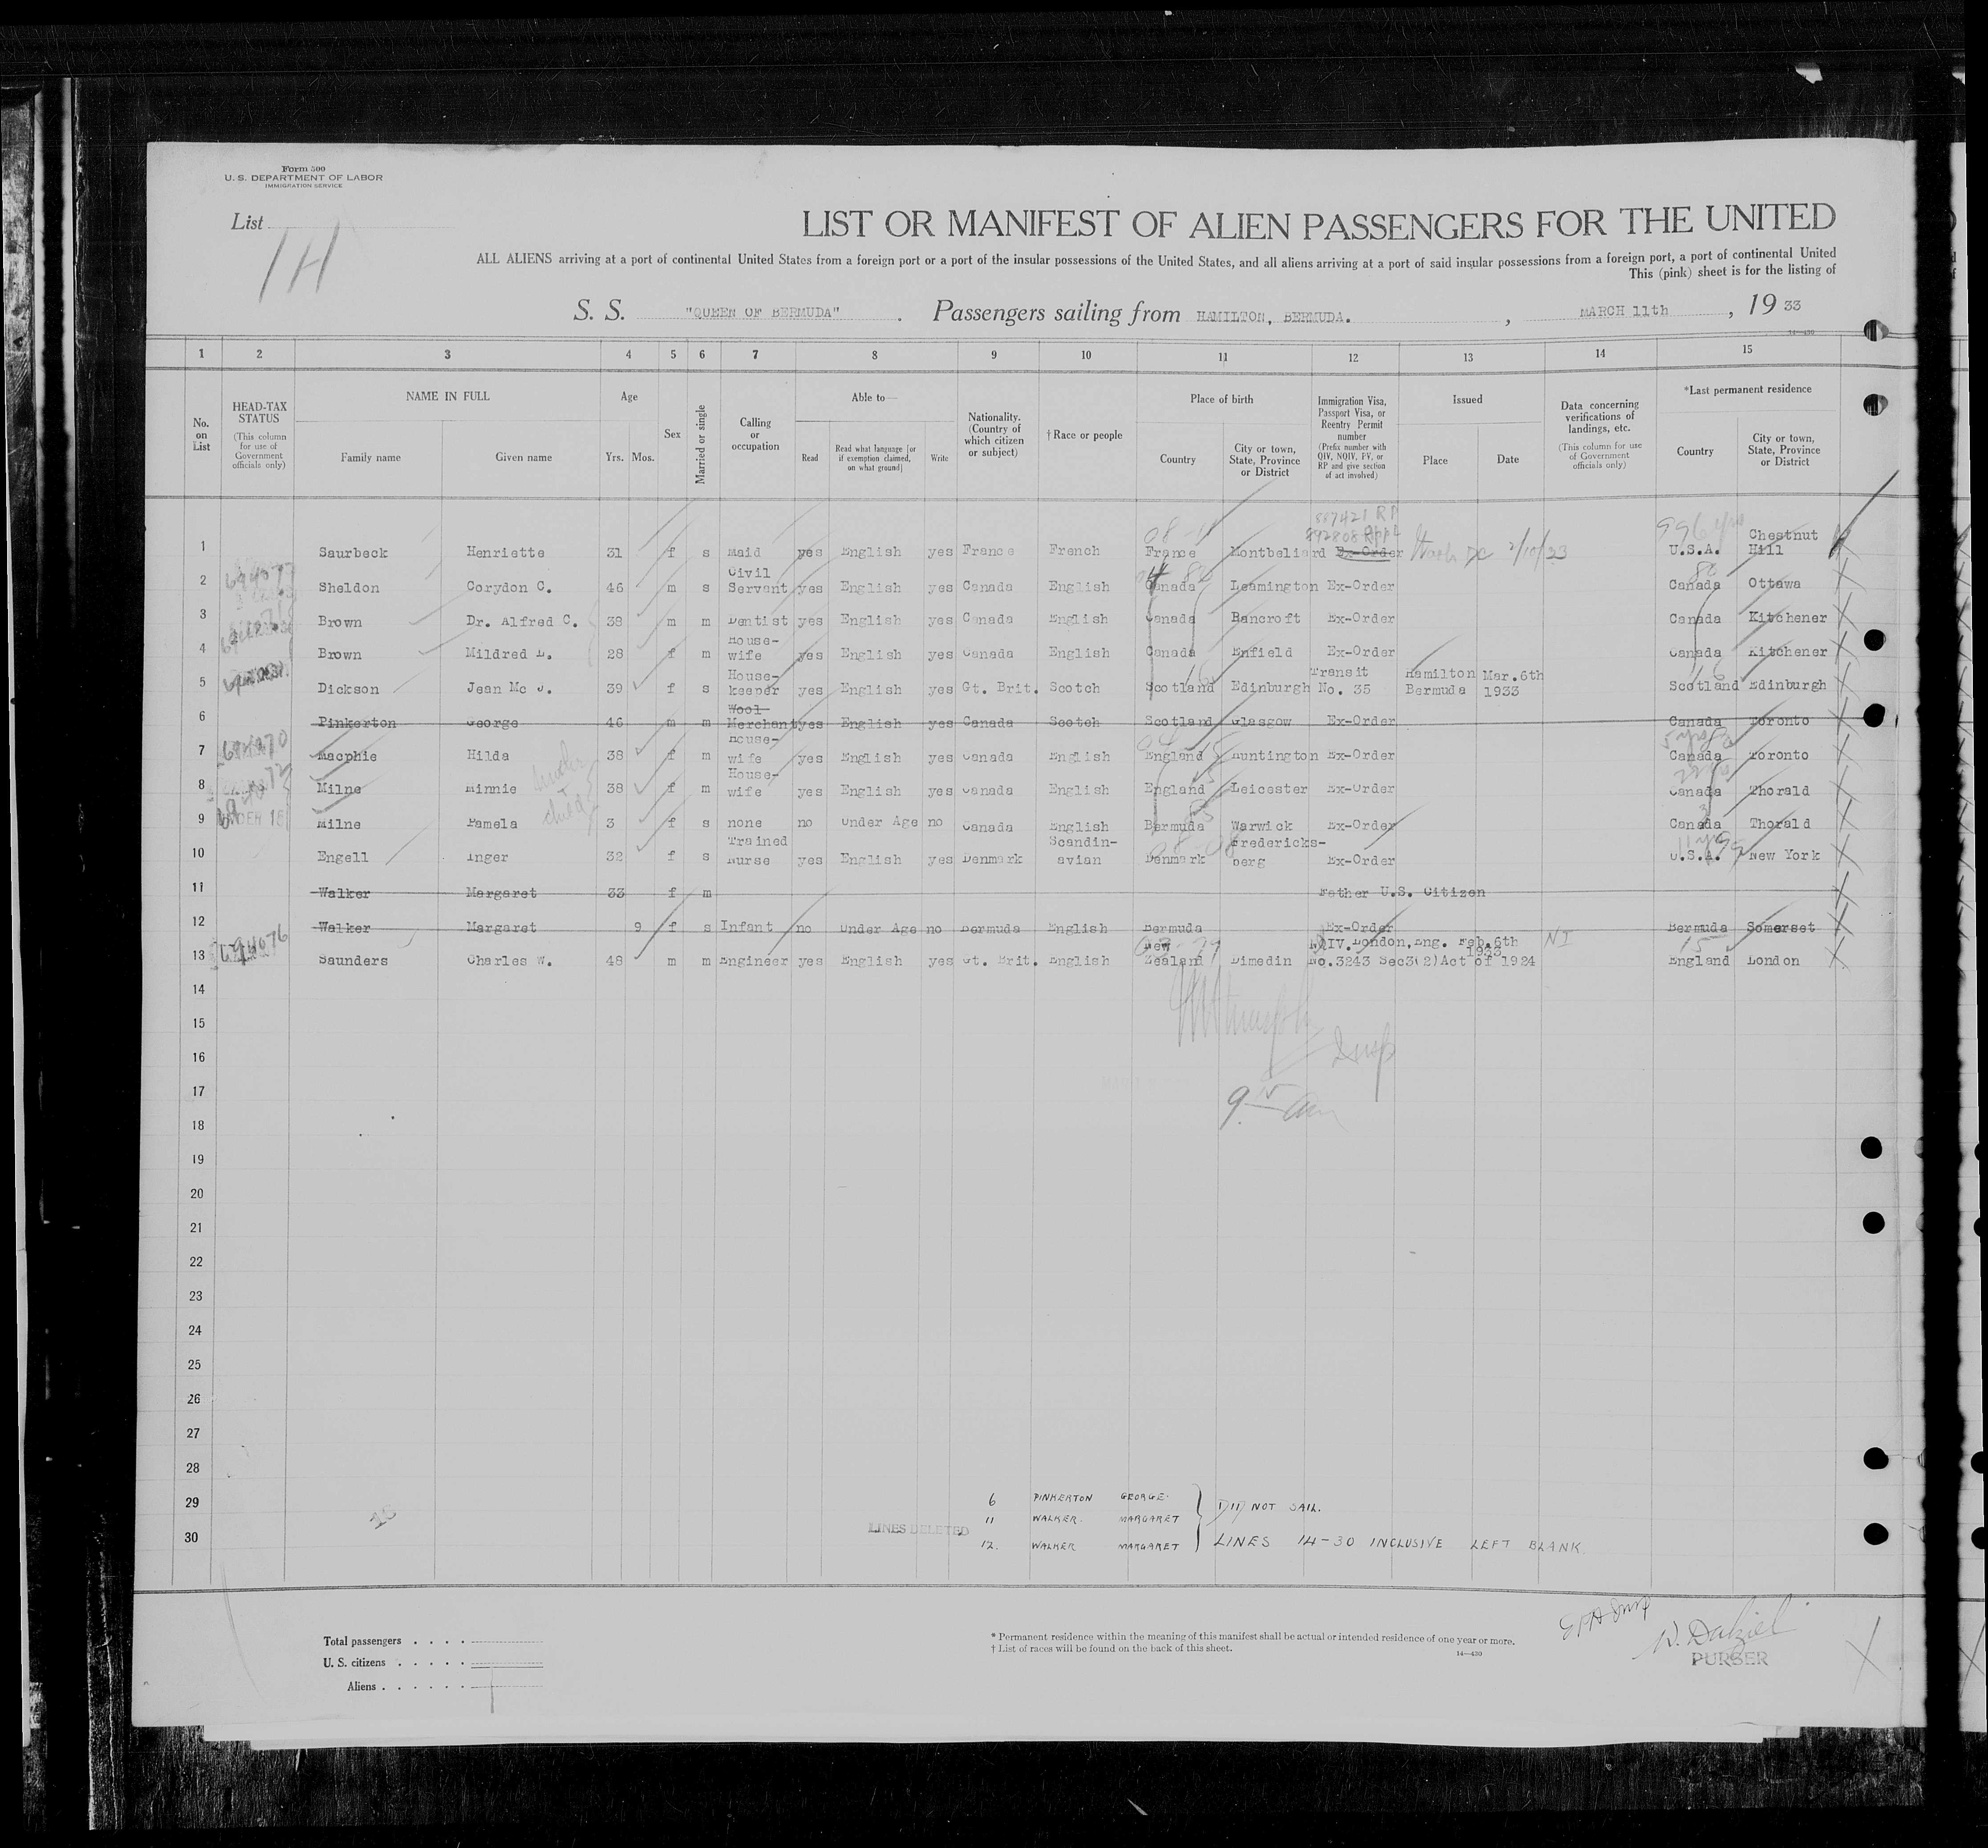 Form 500
U. S. DEPARTMENT OF LABOR
IMMIGRATION SERVICE
List 1H
LIST OR MANIFEST OF ALIEN PASSENGERS FOR THE UNITED
ALL ALIENS arriving at a port of continental United States from a foreign port or a port of the insular possessions of the United States, and all aliens arriving at a port of said insular possessions from a foreign port, a port of continental United
This (pink) sheet is for the listing of
S. S. "QUEEN OF BERMUDA". Passengers sailing from HAMILTON, BERMUDA. , MARCH 11th , 19 33
14—430
1 2 3 4 5 6 7 8 9 10 11 12 13 14 15
No. on List
HEAD-TAX STATUS (This column for use of Government officials only)
NAME IN FULL
Family name Given name
Age
Yrs. Mos.
Sex
Married or single
Calling or occupation
Able to—
Read
Read what language [or if exemption claimed, on what ground]
Write
Nationality. (Country of which citizen or subject)
† Race or people
Place of birth
Country
City or town, State, Province or District
Immigration Visa, Passport Visa, or Reentry Permit number (Prefix number with QIV, NQIV, PV, or RP and give section of act involved)
Issued
Place Date
Data concerning verifications of landings, etc. (This column for use of Government officials only)
*Last permanent residence
Country
City or town, State, Province or District
1 Saurbeck Henriette 31 f s Maid yes English yes France French France Montbeliard Ex-Order U.S.A. Chestnut Hill
2 694077 Sheldon Corydon C. 46 m s Civil Servant yes English yes Canada English Canada Leamington Ex-Order Canada Ottawa
3 Brown Dr. Alfred C. 38 m m Dentist yes English yes Canada English Canada Bancroft Ex-Order Canada Kitchener
4 Brown Mildred L. 28 f m House-wife yes English yes Canada English Canada Enfield Ex-Order Canada Kitchener
5 Dickson Jean Mc J. 39 f s House-keeper yes English yes Gt. Brit. Scotch Scotland Edinburgh Transit No. 35 Hamilton Bermuda Mar.6th 1933 Scotland Edinburgh
6 Pinkerton George 46 m m Wool Merchant yes English yes Canada Scotch Scotland Glasgow Ex-Order Canada Toronto
7 Macphie Hilda 38 f m House-wife yes English yes Canada English England Huntington Ex-Order Canada Toronto
8 Milne Minnie 38 f m House-wife yes English yes Canada English England Leicester Ex-Order Canada Thorald
9 Milne Pamela 3 f s none no Under Age no Canada English Bermuda Warwick Ex-Order Canada Thorald
10 Engell Inger 32 f s Trained Nurse yes English yes Denmark Scandin-avian Denmark Fredericks-berg Ex-Order U.S.A. New York
11 Walker Margaret 33 f m Father U.S. Citizen
12 Walker Margaret 9 f s Infant no Under Age no Bermuda English Bermuda Ex-Order Bermuda Somerset
13 694076 Saunders Charles W. 48 m m Engineer yes English yes Gt. Brit. English New Zealand Dimedin NQIV. London, Eng. Feb.6th 1933 No.3243 Sec3(2)Act of 1924 NI England London
14
15
16
17
9 15 am
18
19
20
21
22
23
24
25
26
27
28
29
30
6 PINKERTON GEORGE. } DID NOT SAIL.
11 WALKER. MARGARET
LINES DELETED
12. WALKER MARGARET LINES 14-30 INCLUSIVE LEFT BLANK.
Total passengers . . . .
U. S. citizens . . . . .
Aliens . . . . . .
* Permanent residence within the meaning of this manifest shall be actual or intended residence of one year or more.
† List of races will be found on the back of this sheet.
14—430
W. Dalziel
PURSER